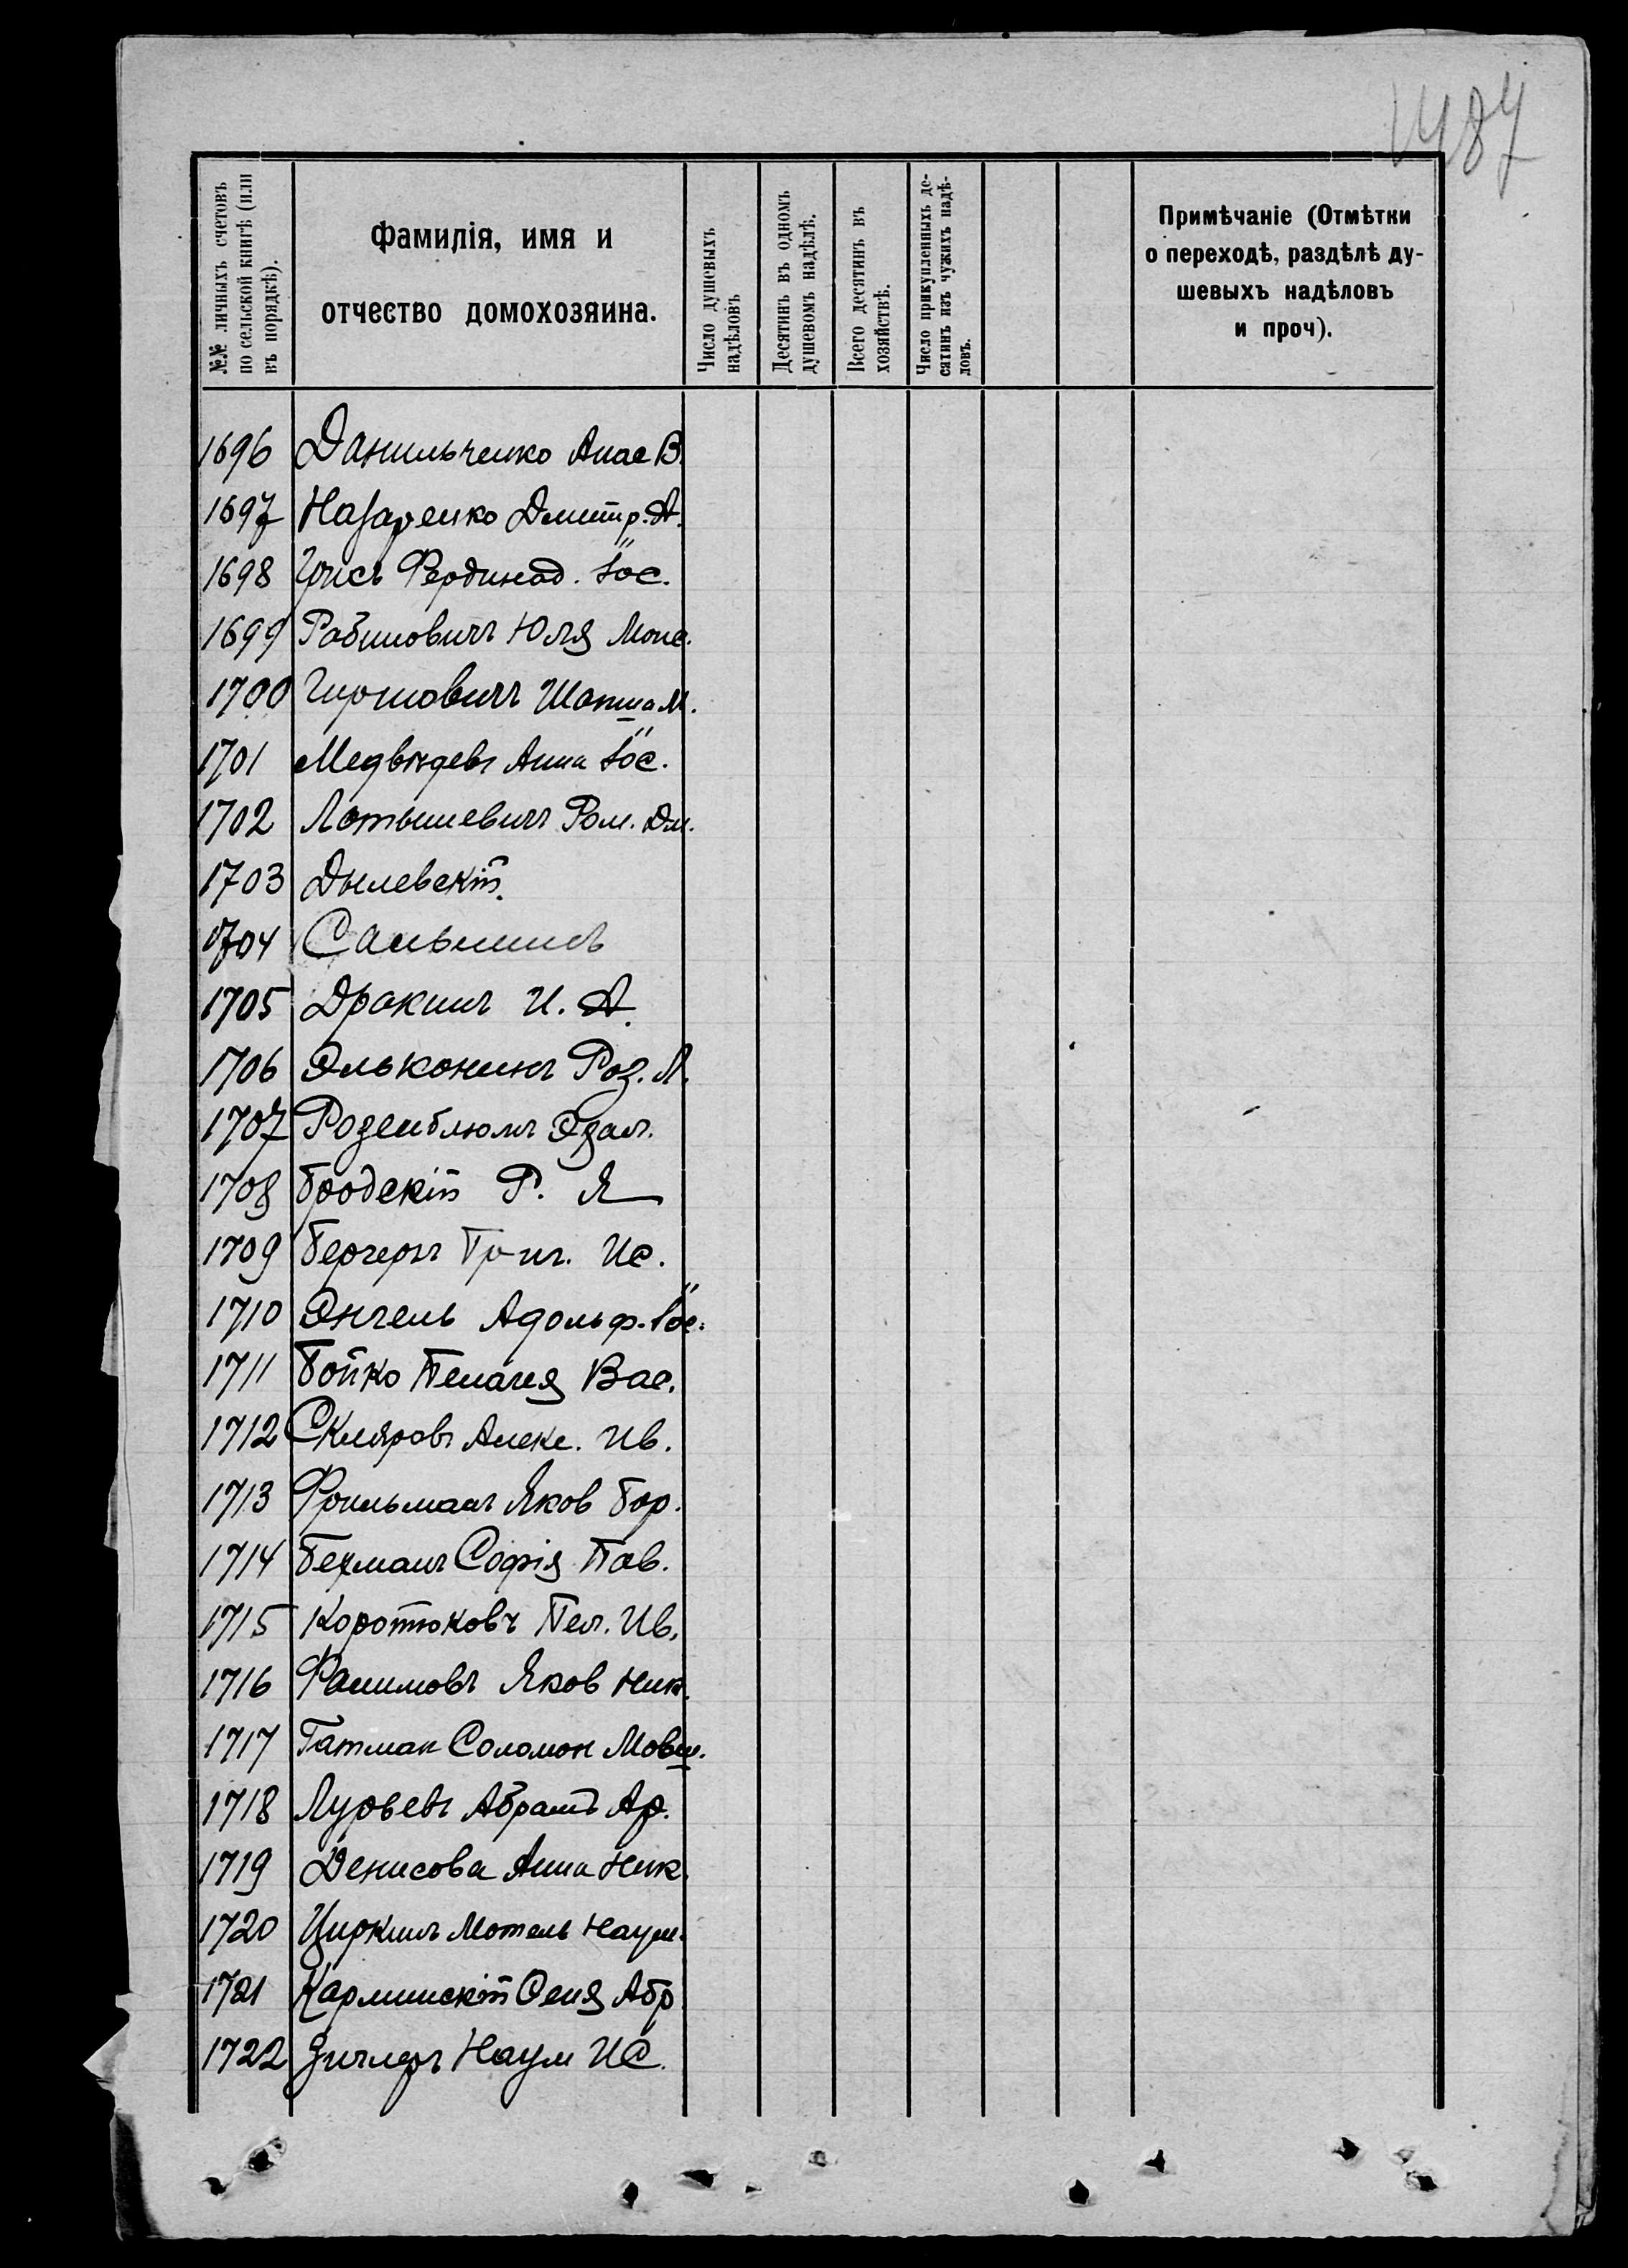 1487
№№ личныхъ счетовъ по сельской книгѣ (или въ порядкѣ).
Фамилія, имя и отчество домохозяина.
Число душевыхъ надѣловъ
Десятинъ въ одномъ душевомъ надѣлѣ.
Всего десятинъ въ хозяйствѣ.
Число прикупленныхъ десятинъ изъ чужихъ надѣловъ.
Примѣчаніе (Отмѣтки о переходѣ, раздѣлѣ душевыхъ надѣловъ и проч).
1696 Данильченко Анас В.
1697 Назаренко Дмитр. А.
1698 Фердинад. Іос.
1699 Рабиновичъ Юля Моис.
1700 Гиршовичъ М.
1701 Медвѣдевъ Анна Іос.
1702 Латышевичъ Ром. Дм.
1703 Дылевскій.
1704
1705 Дракинъ И. А.
1706 Эльконинъ Роз. Л.
1707 Розенблюмъ
1708 Бродскій Р. Я
1709 Бергеръ Григ. Ис.
1710 Энгель Адольф. Іос.
1711 Бойко Пелагея Вас.
1712 Скляровъ Алекс. Ив.
1713 Яков Бор.
1714 Софія Пав.
1715 Коротковъ Пел. Ив.
1716 Яков Ник.
1717 Гатман Соломон Мовш.
1718 Лурьевъ Абрамъ Ар.
1719 Денисова Анна Ник.
1720 Циркинъ Мотель Наум.
1721 Карминскій Сеня Абр
1722 Наум Ис.